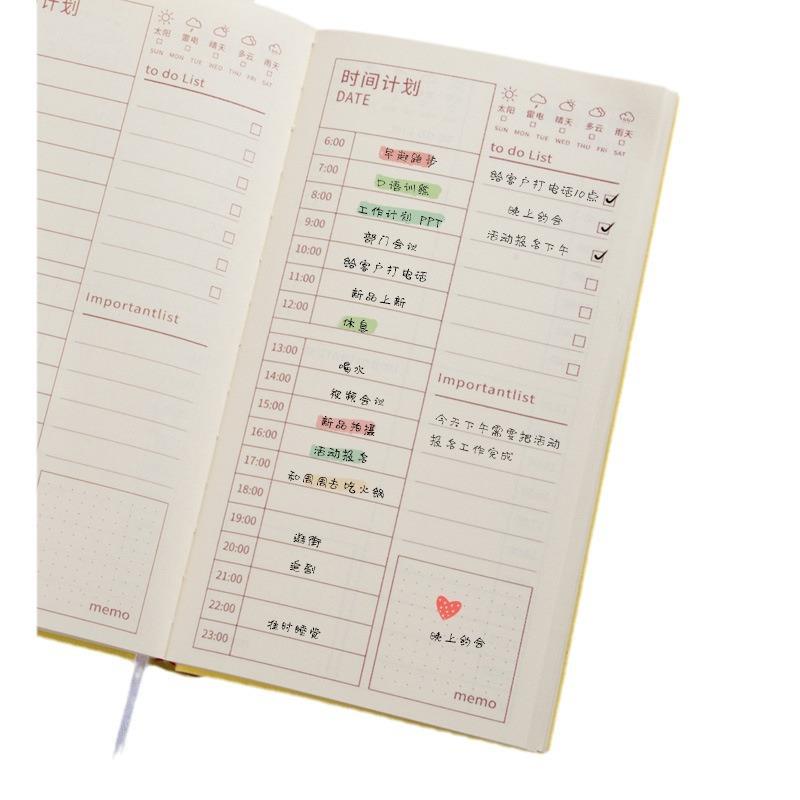 计划
太阳 雷电 晴天 多云 雨天
SUN MON TUE WED THU FRI SAT
to do List
Importantlist
memo
时间计划
DATE
6:00 早起跑步
7:00 口语训练
8:00 工作计划 PPT
9:00 部门会议
10:00 给客户打电话
11:00 新品上新
12:00 休息
13:00 喝水
14:00 视频会议
15:00 新品拍摄
16:00 活动报名
17:00 和周周去吃火锅
18:00
19:00 逛街
20:00 追剧
21:00
22:00 准时睡觉
23:00
太阳 雷电 晴天 多云 雨天
SUN MON TUE WED THU FRI SAT
to do List
给客户打电话10点
晚上约会
活动报名下午
Importantlist
今天下午需要把活动
报名工作完成
晚上约会
memo